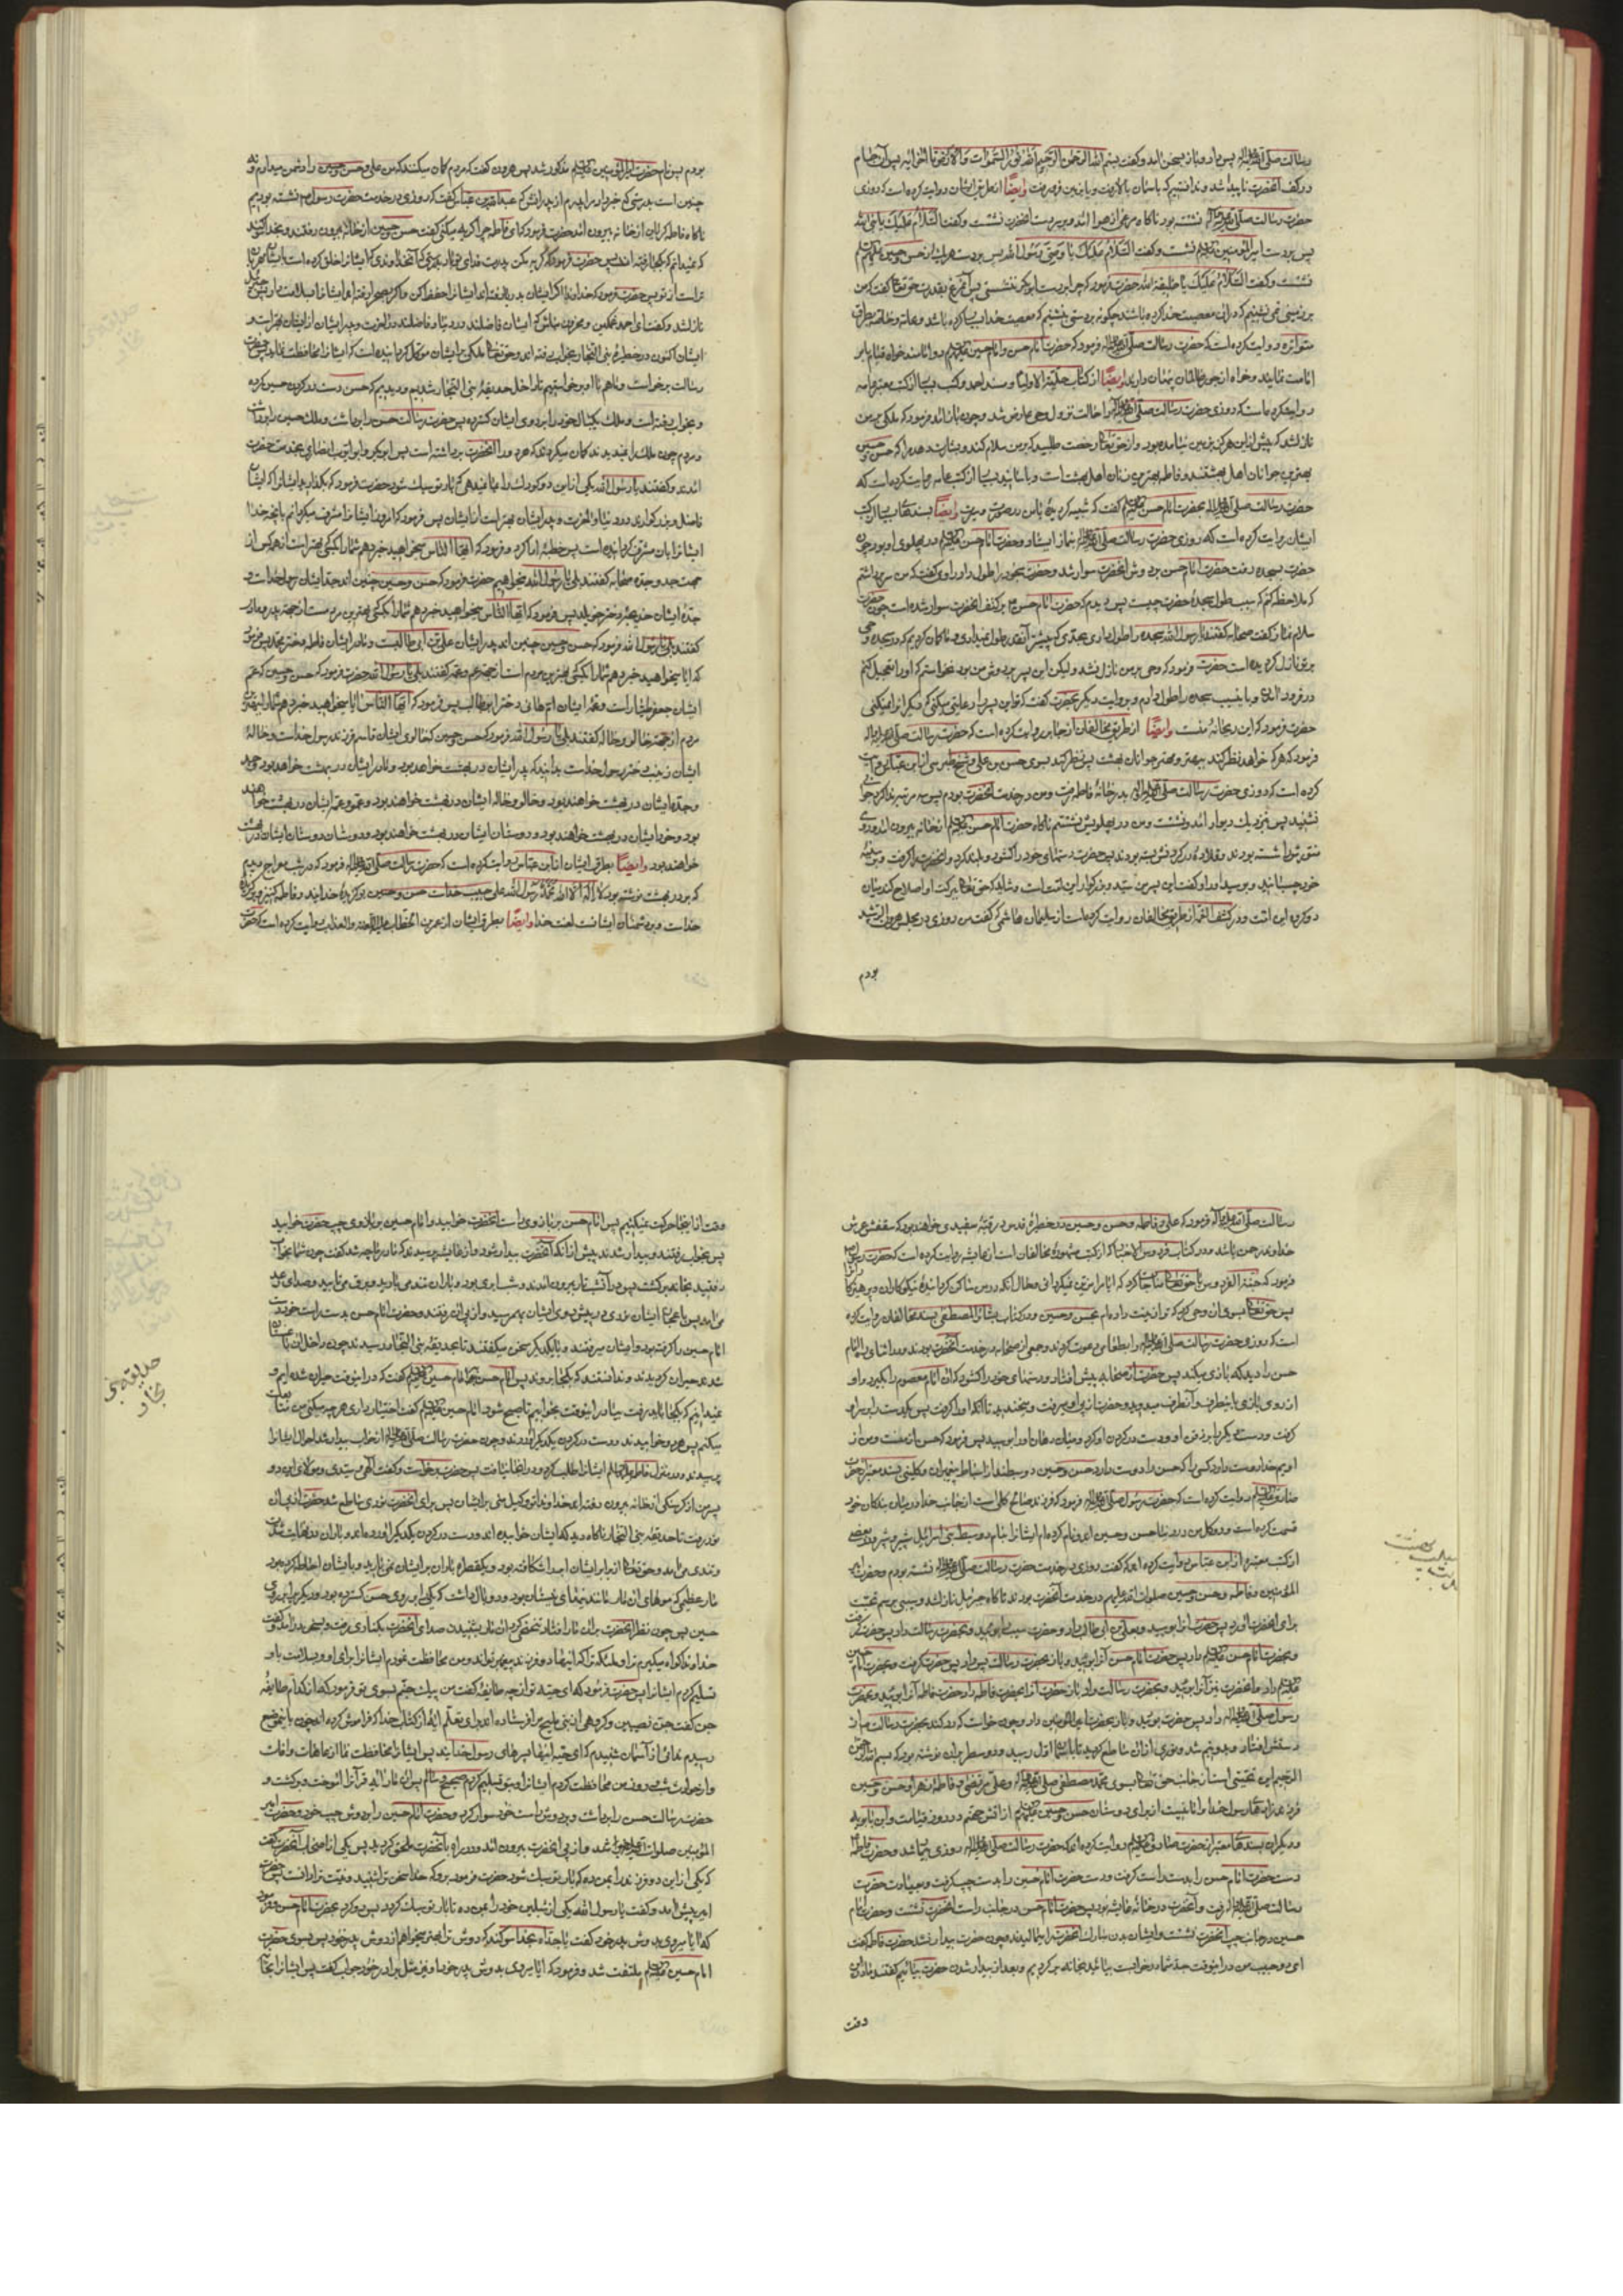 رسالت صلی الله علیه وآله پس دارو باز بسخن آمد وکفت بسم الله الرحمن الرحیم الله نور السموات والارض تا آخر آیه پس آن جام
در کف آنحضرت ناپیدا شد وندانستیم که باسمان بالا رفت ویا بزمین فرو رفت وایضا از طریق ایشان روایت کرده است که روزی
حضرت رسالت صلی الله علیه وآله نشسته بود ناکاه مرغی از هوا آمد وبر دست آنحضرت نشست وکفت السلام علیک یا نبی الله
پس بر دست امیر المؤمنین علیه السلام نشست وکفت السلام علیک یا وصی رسول الله پس بر دست هر یک از حسن وحسین علیهم السلام
نشست وکفت السلام علیک یا خلیفة الله حضرت فرمود که چرا بر دست ابوبکر ننشستی پس آنمرغ بقدرت حق تعالی کفت که من
بر زمینی نمی نشینم که در آن معصیت خدا کرده باشند چکونه بر دستی بنشینم که معصیت خدا بسیار کرده باشد وعامه وخاصه بطرق
متواتره روایت کرده است که حضرت رسالت صلی الله علیه وآله فرمود که حضرت امام حسن وامام حسین علیهما السلام دو امامند خواه قیام بامر
امامت نمایند وخواه از جور ظالمان پنهان دارند وایضا از کتاب حلیة الاولیا ومسند احمد وکتب بسیار از کتب معتبره عامه
روایت کرده است که روزی حضرت رسالت صلی الله علیه وآله را حالت نزول وحی عارض شد وچون باز آمد فرمود که ملکی بر من
نازل شد که پیش از این هرکز بزمین نیامده بود واز حق تعالی رخصت طلبید که بر من سلام کند وبشارت دهد مرا که حسن وحسین
بهترین جوانان اهل بهشتند وفاطمه بهترین زنان اهل بهشت است وباسانید بسیار از کتب عامه روایت کرده است که
حضرت رسالت صلی الله علیه وآله بحضرت امام حسن علیه السلام کفت که شبیه کردیده بمن در صورت وسیرت وایضا بسندهای بسیار از کتب
ایشان روایت کرده است که روزی حضرت رسالت صلی الله علیه وآله بنماز ایستاد وحضرت امام حسن علیه السلام در پهلوی او بود چون
حضرت بسجده رفت حضرت امام حسن بر دوش آنحضرت سوار شد وحضرت سجود را طول داد راوی کفت که من سر برداشتم
که ملاحظه کنم که سبب طول سجده حضرت چیست پس دیدم که حضرت امام حسن بر کتف آنحضرت سوار شده است چون حضرت
سلام نماز کفت صحابه کفتند یا رسول الله سجده را طول دادی بحدی که پیشتر آنقدر طول نمیدادی ما کمان کردیم که در سجده وحی
بر تو نازل کردیده است حضرت فرمود که وحی بر من نازل نشد ولیکن این پسر بر دوش من بود نخواستم که او را تعجیل کنم
در فرود آمدن وباین سبب سجده را طول دادم وبروایت دیکر بحضرت کفت که تو این پسر را رعایتی میکنی که دیکر انرا نمیکنی
حضرت فرمود که این ریحانه منست وایضا از طریق مخالفان از جابر روایت کرده است که حضرت رسالت صلی الله علیه وآله
فرمود که هر که خواهد نظر کند ببهتر ومهتر جوانان بهشت پس نظر کند بسوی حسن بن علی وشیخ طبرسی از ابن عباس روایت
کرده است که روزی حضرت رسالت صلی الله علیه وآله بدر خانه فاطمه رفت ومن در خدمت آنحضرت بودم پس سه مرتبه ندا کرد جوابی
نشنید پس نزدیک دیوار آمد ونشست ومن در پهلویش نشستم ناکاه حضرت امام حسن علیه السلام از خانه بیرون آمد وروی
منورش را شسته بودند وقلاده در کردنش بسته بودند پس حضرت دستهای خود را کشود وبلند کرد وآنحضرت را کرفت وبر سینه
خود چسبانید وبوسید او را وکفت این پسر من سید وبزرکوار این امت است وشاید که حق تعالی ببرکت او اصلاح کند میان
دو کروه این امت ودر کشف الغمه از طریق مخالفان روایت کرده است از سلیمان هاشمی که کفت من روزی در مجلس هرون الرشید
بودم
بودم پس نام حضرت امیر المؤمنین علیه السلام مذکور شد پس هرون کفت که مردم کمان میکنند که من علی وحسن وحسین را دشمن میدارم ونه
چنین است بدرستی که خبر داد مرا پدرم از پدرانش که عبدالله بن عباس کفت که روزی در خدمت حضرت رسول نشسته بودیم
ناکاه فاطمه کریان از خانه بیرون آمد حضرت فرمود که ای فاطمه چرا کریه میکنی کفت حسن وحسین از خانه بیرون رفتند وبخدا سوکند
که نمیدانم که بکجا رفته اند پس حضرت فرمود که کریه مکن پدرت فدای تو باد بدرستی که آنخداوندی که ایشانرا خلق کرده است بایشان مهربان
تر است از تو پس حضرت فرمود که خداوندا اکر ایشان بدریا رفته اند ایشانرا حفظ کن واکر بصحرا رفته اند ایشانرا بسلامت دار پس جبرئیل
نازل شد وکفت ای احمد غمکین ومحزون مباش که ایشان فاضلند در دنیا وفاضلند در آخرت وپدر ایشان از ایشان بهتر است و
ایشان اکنون در حظیره بنی النجار بخواب رفته اند وحق تعالی ملکی را بایشان موکل کردانیده است که ایشانرا محافظت نماید پس حضرت
رسالت برخاست وما هم با او برخواستیم تا داخل حدیقه بنی النجار شدیم ودیدیم که حسن دست در کردن حسین کرده
وبخواب رفته است وملک یکبال خود را بر روی ایشان کسترده پس حضرت رسالت حسن را برداشت وملک حسین را برداشت
ومردم چون ملک را نمیدیدند کمان میکردند که هر دو را آنحضرت برداشته است پس ابوبکر وابو ایوب انصاری بخدمت حضرت
آمدند وکفتند یا رسول الله یکی از این دو کودک را بما نمیدهی که بار تو سبک شود حضرت فرمود که بکذارید ایشانرا که ایشان
فاضل وبزرکوارند در دنیا وآخرت وپدر ایشان بهتر است از ایشان پس فرمود که امروز ایشانرا مشرف میکردانم بآنچه خدا
ایشانرا بآن مشرف کردانیده است پس خطبه ادا کرد وفرمود که ایها الناس میخواهید خبر دهم شما را بکسی که بهتر است از همه کس از
جهت جد وجده صحابه کفتند بلی یا رسول الله میخواهیم حضرت فرمود که حسن وحسین چنین اند جد ایشان رسول خداست و
جده ایشان خدیجه دختر خویلد پس فرمود که ایها الناس میخواهید خبر دهم شما را بکسی که بهترین مردم است از جهت پدر ومادر
کفتند بلی یا رسول الله فرمود که حسن وحسین چنین اند پدر ایشان علی بن ابی طالبست ومادر ایشان فاطمه دختر محمد پس فرمود
که ایا میخواهید خبر دهم شما را بکسی که بهترین مردم است از جهت عم وعمه کفتند بلی یا رسول الله حضرت فرمود که حسن وحسین که عم
ایشان جعفر طیار است وعمه ایشان ام هانی دختر ابو طالب پس فرمود که ایها الناس آیا میخواهید خبر دهم شما را ببهترین
مردم از جهت خالو وخاله کفتند بلی یا رسول الله فرمود که حسن وحسین که خالوی ایشان قاسم فرزند رسول خداست وخاله
ایشان زینب دختر رسول خداست بدانید که پدر ایشان در بهشت خواهد بود ومادر ایشان در بهشت خواهد بود وجد
وجده ایشان در بهشت خواهند بود وخالو وخاله ایشان در بهشت خواهند بود وعم وعمه ایشان در بهشت خواهند
بود وخود ایشان در بهشت خواهند بود ودوستان ایشان در بهشت خواهند بود ودوستان دوستان ایشان در بهشت
خواهند بود وایضا بطرق ایشان از ابن عباس روایت کرده است که حضرت رسالت صلی الله علیه وآله فرمود که در شب معراج دیدم
که بر در بهشت نوشته بود لا اله الا الله محمد رسول الله علی حبیب خداست حسن وحسین برکزیده خدایند وفاطمه کنیز برکزیده
خداست وبر دشمنان ایشانست لعنت خدا وایضا بطرق ایشان از عمر بن الخطاب علیه اللعنه والعذاب روایت کرده است که حضرت
رسالت صلی الله علیه وآله فرمود که علی وفاطمه وحسن وحسین در حظیره قدس در قبه سفیدی خواهند بود که سقفش عرش
خداوند رحمن باشد ودر کتاب فردوس الاخبار که از کتب مشهوره مخالفان است از عایشه روایت کرده است که حضرت رسول
فرمود که جنة الفردوس با حق تعالی مناجات کرد که ایا مرا مزین نمیکردانی وحال آنکه در من ساکن کردانیده نیکوکاران وپرهیزکاران را
پس حق تعالی بسوی آن وحی کرد که ترا زینت داده ام بحسن وحسین ودر کتاب بشائر المصطفی بسند مخالفان روایت کرده
است که روزی حضرت رسالت صلی الله علیه وآله را بطعامی دعوت کردند وجمعی از صحابه در خدمت آنحضرت بودند ودر اثنای راه امام
حسن را دید که بازی میکند پس حضرت از صحابه پیش افتاد ودستهای خود را کشود که آن امام معصوم را بکیرد واو
از روی بازی باینطرف وآنطرف میدوید وحضرت از پی او میرفت ومیخندید تا آنکه او را کرفت پس یکدست را بر سر او
کرفت ودست دیکر را بر زقن او ودست در کردن او کرد ومیان دهان او را بوسید پس فرمود که حسن از منست ومن از
اویم خدا دوست دارد کسی را که حسن را دوست دارد حسن وحسین دو سبطند از اسباط پیغمبران وکلینی بسند معتبر از حضرت
صادق علیه السلام روایت کرده است که حضرت رسول صلی الله علیه وآله فرمود که فرزند صالح کلی است از جانب خدا در میان بندکان خود
قسمت کرده است ودو کل من در دنیا حسن وحسین اند ونام کرده ام ایشانرا بنام دو سبط بنی اسرائیل شبر وشبیر ودر بعضی
از کتب معتبره از ابن عباس روایت کرده اند که کفت روزی در خدمت حضرت رسالت صلی الله علیه وآله نشسته بودم وحضرت امیر
المؤمنین وفاطمه وحسن وحسین صلوات الله علیهم در خدمت آنحضرت بودند ناکاه جبرئیل نازل شد وسیبی برسم تحیت
برای آنحضرت آورد پس حضرت آنرا بوئید وبعلی بن ابی طالب داد وحضرت سیب را بوئید وبحضرت رسالت داد پس حضرت کرفت
وبحضرت امام حسن علیه السلام داد پس حضرت امام حسن آنرا بوئید وباز بحضرت رسالت پس داد پس حضرت کرفت وبحضرت امام حسین
علیه السلام داد وآنحضرت نیز آنرا بوئید وبحضرت رسالت داد وباز حضرت آنرا بحضرت فاطمه داد وحضرت فاطمه آنرا بوئید وبحضرت
رسول صلی الله علیه وآله داد پس حضرت بوئید وباز بحضرت امیر المؤمنین داد وچون خواست که رد کند بحضرت رسالت از
دستش افتاد وبدو نیم شد ونوری از آن ساطع کردید تا باسمان اول رسید ودو سطر بر آن نوشته بود که بسم الله الرحمن
الرحیم این تحیتی است از جانب حق تعالی بسوی محمد مصطفی صلی الله علیه وآله وعلی مرتضی وفاطمه زهرا وحسن وحسین
فرزندزادهای رسول خدا وامانیست از برای دوستان حسن وحسین علیهما السلام از آتش جهنم در روز قیامت وابن بابویه
ودیکران بسندهای معتبر از حضرت صادق علیه السلام روایت کرده اند که حضرت رسالت صلی الله علیه وآله روزی بیمار شد وحضرت فاطمه
دست حضرت امام حسن را بدست راست کرفت ودست حضرت امام حسین را بدست چپ کرفت وبعیادت حضرت
رسالت صلی الله علیه وآله رفت وآنحضرت در خانه عایشه بود پس حضرت امام حسن در جانب راست آنحضرت نشست وحضرت امام
حسین در جانب چپ آنحضرت نشست وایشان بدن مبارک آنحضرت را میمالیدند وچون حضرت بیدار نشد حضرت فاطمه کفت
ای دو حبیب من در اینوقت جد شما در خوابست بیائید بخانه برکردیم وبعد از بیدار شدن حضرت بیائیم کفتند ما در این
وقت
وقت از اینجا حرکت نمیکنیم پس امام حسن بر بازوی راست آنحضرت خوابید وامام حسین بر بازوی چپ حضرت خوابید
پس بخواب رفتند وبیدار شدند پیش از آنکه آنحضرت بیدار شود واز عایشه پرسیدند که مادر ما چه شد کفت چون شما بخواب
رفتید بخانه برکشت پس در آنشب تار بیرون آمدند وشب ابری بود وباران تندی میبارید وبرق میتابید وصدای رعد
میآمد پس باعجاز ایشان نوری در پیش روی ایشان بهمرسید واز پی آن رفتند وحضرت امام حسن بدست راست خود دست
امام حسین را کرفته بود وایشان میرفتند وبا یکدیکر سخن میکفتند تا بحدیقه بنی النجار رسیدند چون داخل آن باغستان
شدند حیران کردیدند وندانستند که بکجا بروند پس امام حسن با امام حسین علیهما السلام کفت که در اینوقت حیران شده ایم و
نمیدانیم که بکجا باید رفت بیا در اینوقت بخوابیم تا صبح شود امام حسین علیه السلام کفت اختیار داری هر چه میکنی من متابعت
میکنم پس هر دو خوابیدند ودست در کردن یکدیکر آوردند وچون حضرت رسالت صلی الله علیه وآله از خواب بیدار شد احوال ایشانرا
پرسیدند ودر منزل فاطمه ایشانرا طلب کرد ودر آنجا نیافت پس حضرت برخاست وکفت الهی وسیدی ومولای این دو
پسر من از کرسنکی از خانه بیرون رفته اند خداوندا تو وکیل منی بر ایشان پس برای آنحضرت نوری ساطع شد حضرت از پی آن
نور رفت تا حدیقه بنی النجار ناکاه دید که ایشان خوابیده اند ودست در کردن یکدیکر آورده اند وباران در نهایت شدت
وتندی میآمد وحق تعالی از بالای ایشان ابر را شکافته بود ویکقطره باران بر ایشان نمی بارید وبایشان احاطه کرده بود
مار عظیمی که موهای آن مار مانند نیهای نیستان بود ودو بال داشت که یکی را بر روی حسن کسترده بود ودیکری را بر روی
حسین پس چون نظر آنحضرت بر آن مار افتاد تنحنحی کرد آن مار بشنیدن صدای آنحضرت بکناری رفت وبسخن در آمد وکفت
خداوندا کواه میکیرم ترا وملئکه ترا که اینها دو فرزند پیغمبر تواند ومن محافظت نمودم ایشانرا برای او وبسلامت باو
تسلیم کردم ایشانرا پس حضرت فرمود که ای حیه تو از چه طایفه کفت من پیک جنم بسوی تو فرمود که از کدام طایفه
جن کفت جن نصیبین وکروهی از بنی ملیح مرا فرستاده اند برای تعلم آیه از کتاب خدا که فراموش کرده اند چون باینموضع
رسیدم ندائی از آسمان شنیدم که ای حیه اینها پسرهای رسول خدایند پس ایشانرا محافظت نما از عاهات وآفات
واز حوادث شب وروز من محافظت کردم ایشانرا وبتو تسلیم کردم صحیح وسالم پس آن مار آیه قرآنرا آموخت وبرکشت و
حضرت رسالت حسن را برداشت وبر دوش راست خود سوار کرد وحضرت امام حسین را بر دوش چپ خود وحضرت امیر
المؤمنین صلوات الله علیه از پی آنحضرت بیرون آمد ودر راه بآنحضرت ملحق کردید پس یکی از اصحاب آنحضرت کفت
که یکی از این دو فرزند را بمن ده که بار تو سبک شود حضرت فرمود برو که خدا سخن ترا شنید ونیت ترا دانست حضرت
امیر پیش آمد وکفت یا رسول الله یکی از شبلین خود را بمن ده تا بار تو سبک کردد پس رو کرد بحضرت امام حسن وفرمود
که آیا میروی بدوش پدر خود کفت یا جداه بخدا سوکند که دوش ترا بهتر میخواهم از دوش پدر خود پس بسوی حضرت
امام حسین علیه السلام ملتفت شد وفرمود که آیا میروی بدوش پدر خود او نیز مثل برادر خود جواب کفت پس ایشانرا بخانه
حدیقه بنی
نجار